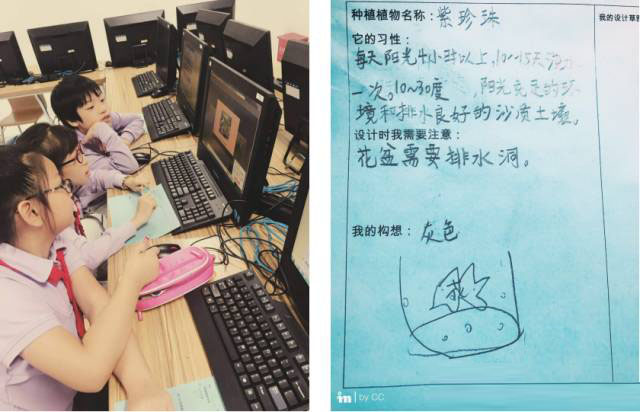 种植植物名称：紫珍珠
我的设计草
它的习性：
每天阳光4小时以上，10~15天
一次。10~30度，阳光充足的环
境和排水良好的沙质土壤。
设计时我需要注意：
花盆需要排水洞。
我的构想：灰色
in | by CC